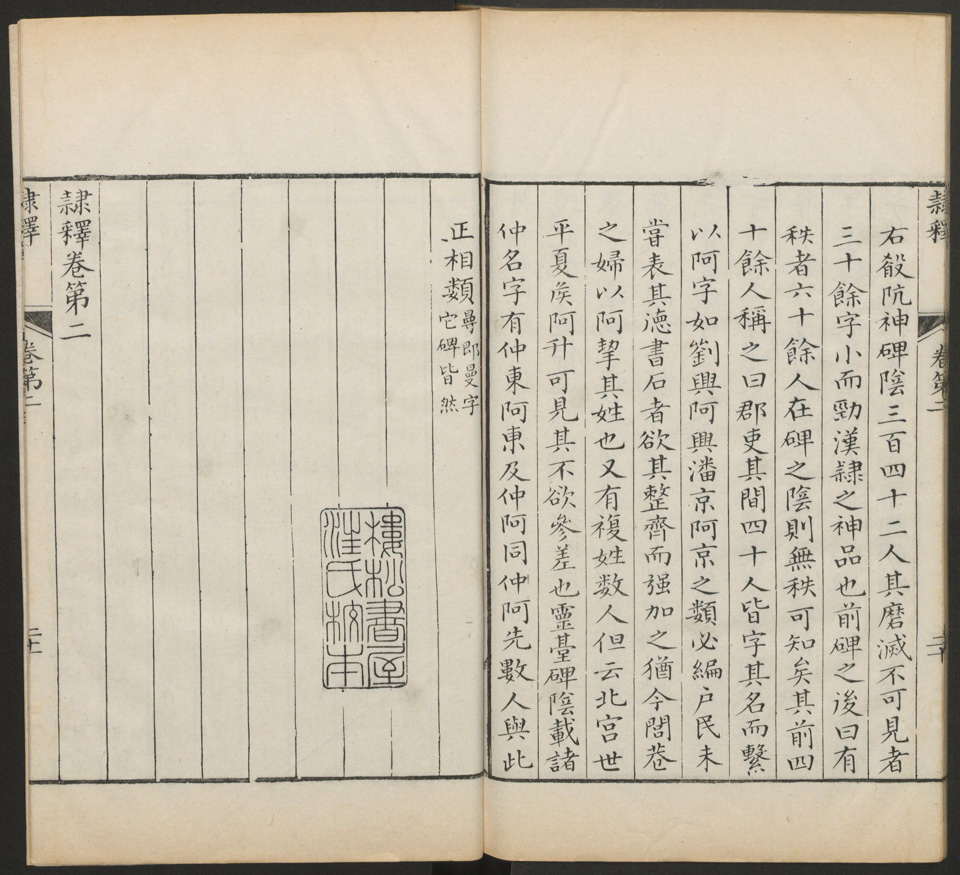 隷釋
卷第二
二十
右殽阬神碑陰三百四十二人其磨滅不可見者
三十餘字小而勁漢隷之神品也前碑之後曰有
秩者六十餘人在碑之陰則無秩可知矣其前四
十餘人稱之曰郡吏其間四十人皆字其名而繫
以阿字如劉興阿興潘京阿京之類必編戶民未
甞表其德書石者欲其整齊而强加之猶今閭巷
之婦以阿挈其姓也又有複姓數人但云北宮世
平夏矦阿升可見其不欲參差也靈臺碑陰載諸
仲名字有仲東阿東及仲阿同仲阿先數人與此
正相類㝷即曼字
它碑皆然
樓松書屋
汪氏校本
隷釋卷第二
隷釋
卷第二
二十一